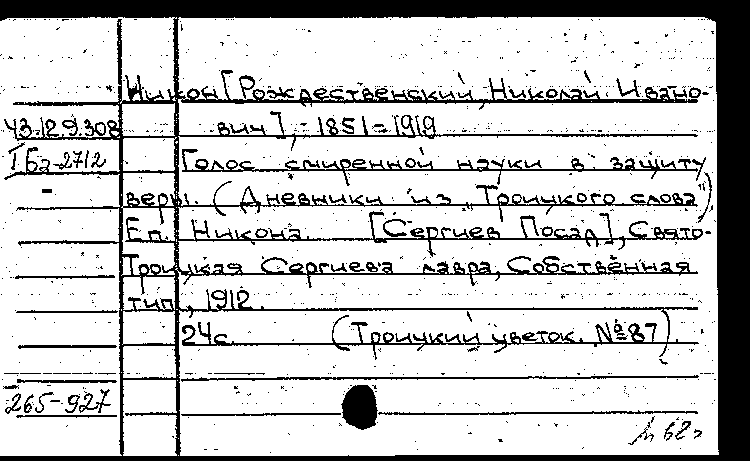 Никон [Рождественский, Николай Ивано-
Ч3.129.308 вич], 1851=1919
I Ба-2712 Голос смиренной науки в защиту
веры. (Дневники из „Троицкого слова")
Еп. Никона. [Сергиев Посад], Свято-
Троицкая Сергиева лавра, Собственная
тип., 1912.
24с. (Троицкий цветок. №87).
265-927